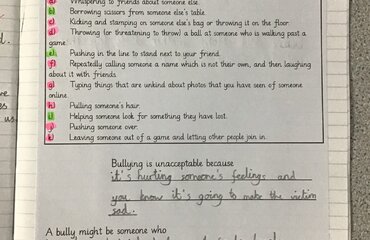 a) Whispering to friends about someone else.
b) Borrowing scissors from someone else's table.
c) Kicking and stamping on someone else's bag or throwing it on the floor
d) Throwing (or threatening to throw) a ball at someone who is walking past a
game.
e) Pushing in the line to stand next to your friend.
f) Repeatedly calling someone a name which is not their own, and then laughing
about it with friends.
g) Typing things that are unkind about photos that you have seen of someone
online.
h) Pulling someone's hair.
i) Helping someone look for something they have lost.
j) Pushing someone over.
k) Leaving someone out of a game and letting other people join in.
Bullying is unacceptable because
it's hurting someone's feelings and
you know it's going to make the victim
sad.
A bully might be someone who